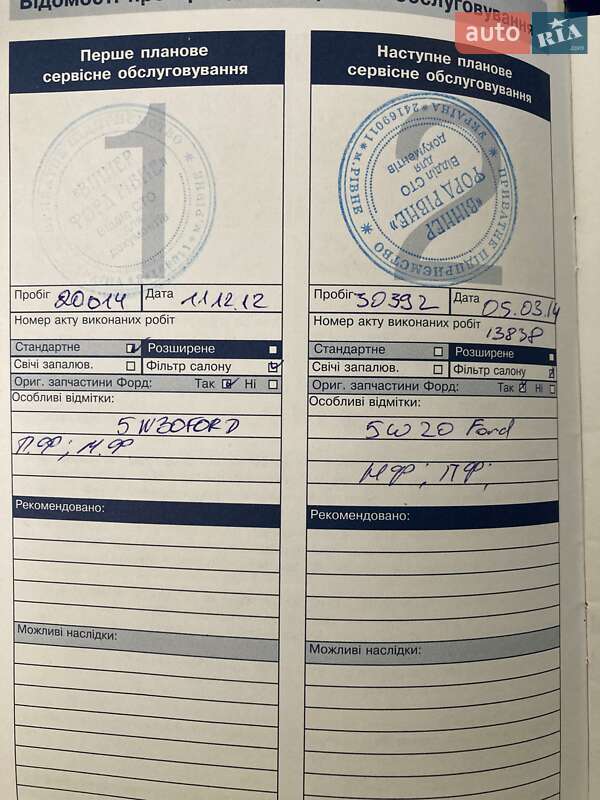 Відомості про обслуговування
auto RIA .com
Перше планове
сервісне обслуговування
1
Пробіг 20014 Дата 11.12.12
Номер акту виконаних робіт
Стандартне Розширене
Свічі запалюв. Фільтр салону
Ориг. запчастини Форд: Так Ні
Особливі відмітки:
5W30 FORD
П.Ф; М.Ф
Рекомендовано:
Можливі наслідки:
Наступне планове
сервісне обслуговування
2
УКРАЇНА * ПРИВАТНЕ ПІДПРИЄМСТВО * м. РІВНЕ * 24169011 *
"ВІННЕР
ФОРД РІВНЕ"
Відділ СТО
для
документів
Пробіг 30392 Дата 05.03.14
Номер акту виконаних робіт 13838
Стандартне Розширене
Свічі запалюв. Фільтр салону
Ориг. запчастини Форд: Так Ні
Особливі відмітки:
5W20 Ford
МФ; ПФ;
Рекомендовано:
Можливі наслідки: